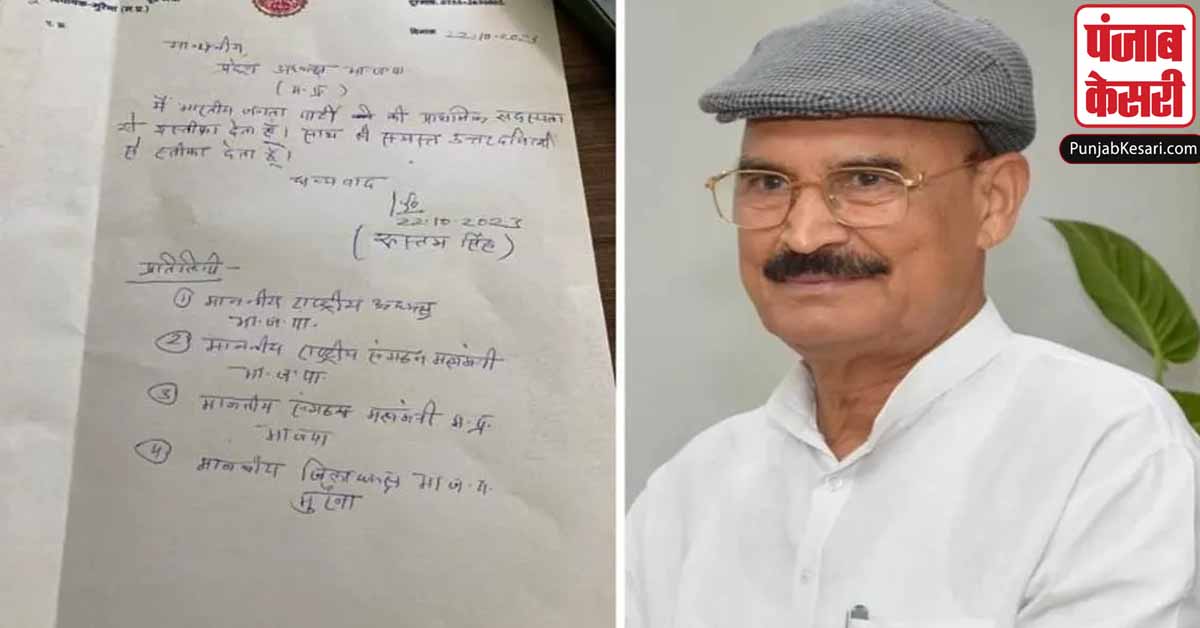 दिनांक 22.10.2023
माननीय,
प्रदेश अध्यक्ष भाजपा
(म.प्र.)
मैं भारतीय जनता पार्टी की प्राथमिक सदस्यता
से स्तीफा देता हूँ। साथ ही समस्त उत्तरदायित्वों
से स्तीफा देता हूँ।
धन्यवाद
22.10.2023
(रूस्तम सिंह)
प्रतिलिपी -
① माननीय राष्ट्रीय अध्यक्ष
भा.ज.पा.
② माननीय राष्ट्रीय संगठन महामंत्री
भा.ज.पा.
③ माननीय संगठन महामंत्री म.प्र.
भाजपा
④ माननीय जिलाध्यक्ष भा.ज.पा.
मुरैना
पंजाब
केसरी
PunjabKesari.com